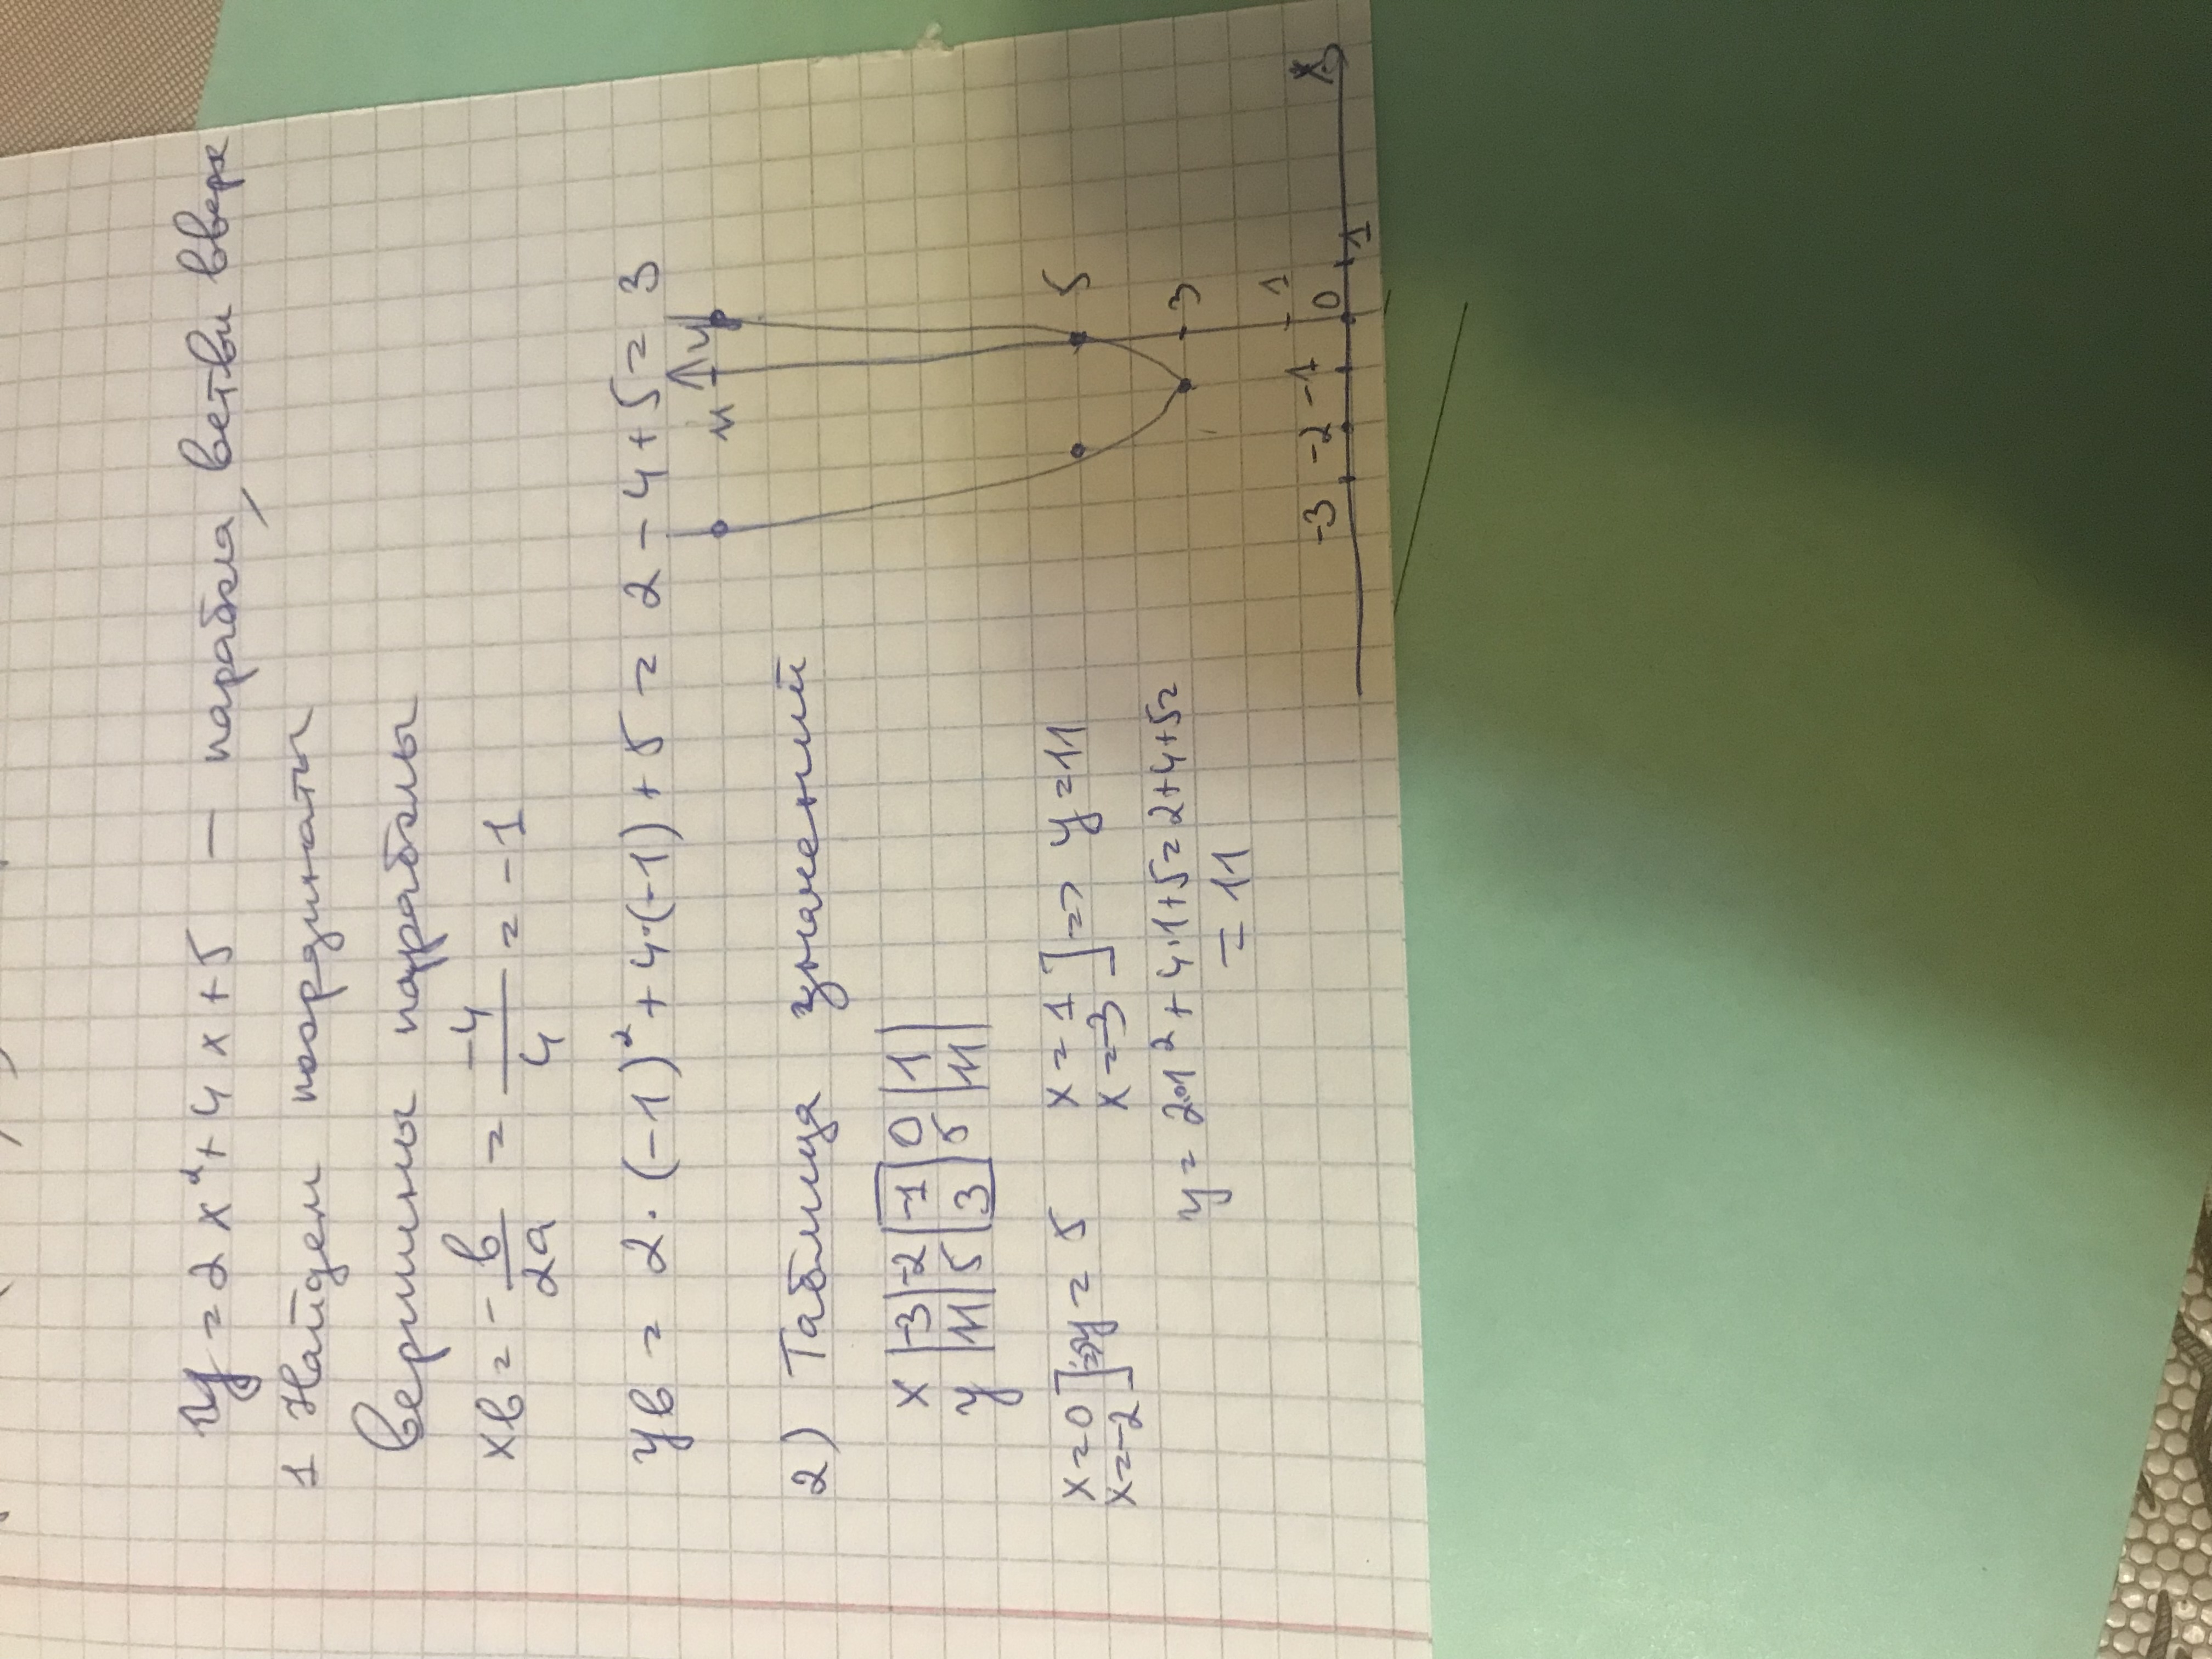 y = 2x² + 4x + 5 — парабола, ветви вверх
1 Найдем координаты
вершины параболы
xв = - в/2а = -4/4 = -1
yв = 2·(-1)² + 4·(-1) + 5 = 2 - 4 + 5 = 3
2) Таблица значений
x | -3 | -2 | -1 | 0 | 1 |
y | 11 | 5 | 3 | 5 | 11 |
x = 0
x = -2 ] => y = 5
x = 1
x = -3 ] => y = 11
y = 2·1² + 4·1 + 5 = 2 + 4 + 5 =
= 11
y
11
5
3
1
-3 -2 -1 0 1
x